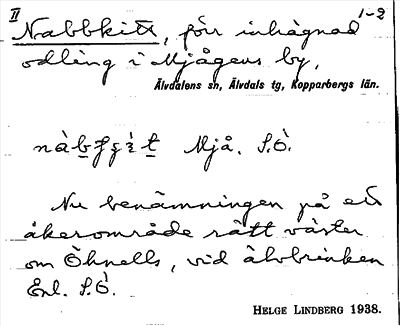 II 1-2
Nabbkitt, förr inhägnad
odling i Mjågens by,
Älvdalens sn, Älvdals tg, Kopparbergs län.
Mjå. S.Ö.
Nu benämningen på ett
åkerområde rätt väster
om Öhnells, vid älvbrinken
Enl. S.Ö.
HELGE LINDBERG 1938.